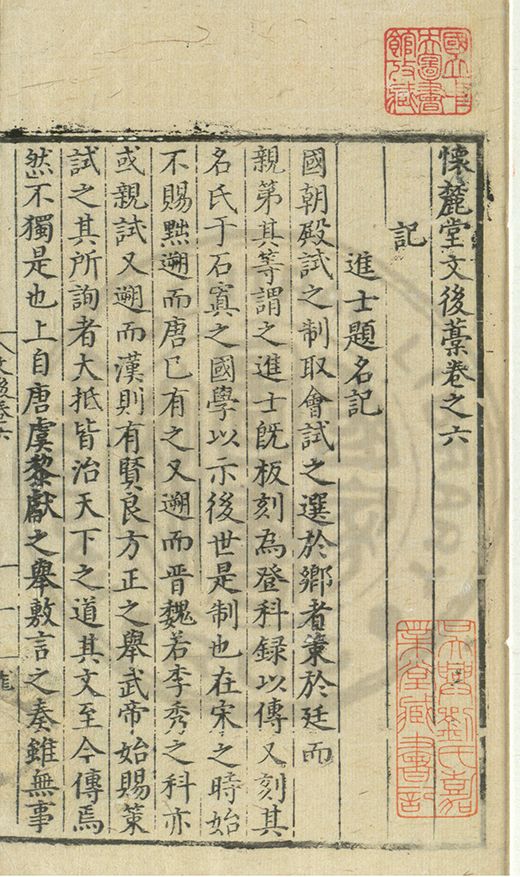 懷麓堂文後藁卷之六
記
進士題名記
國朝殿試之制取會試之選於鄉者策於廷而
親第其等謂之進士既板刻為登科録以傳又刻其
名氏于石寘之國學以示後世是制也在宋之時始
不賜黜遡而唐已有之又遡而晋魏若李秀之科亦
或親試又遡而漢則有賢良方正之舉武帝始賜策
試之其所詢者大抵皆治天下之道其文至今傳焉
然不獨是也上自唐虞黎獻之舉敷言之奏雖無事
國立中
央圖書
館收藏
吴興劉氏嘉
業堂藏書記